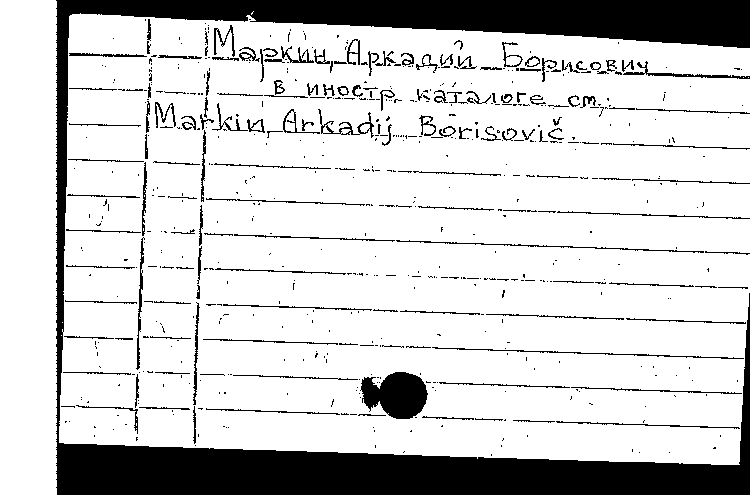 Маркин, Аркадий Борисович
в иностр. каталоге см.:
Markin, Arkadij Borisovič.